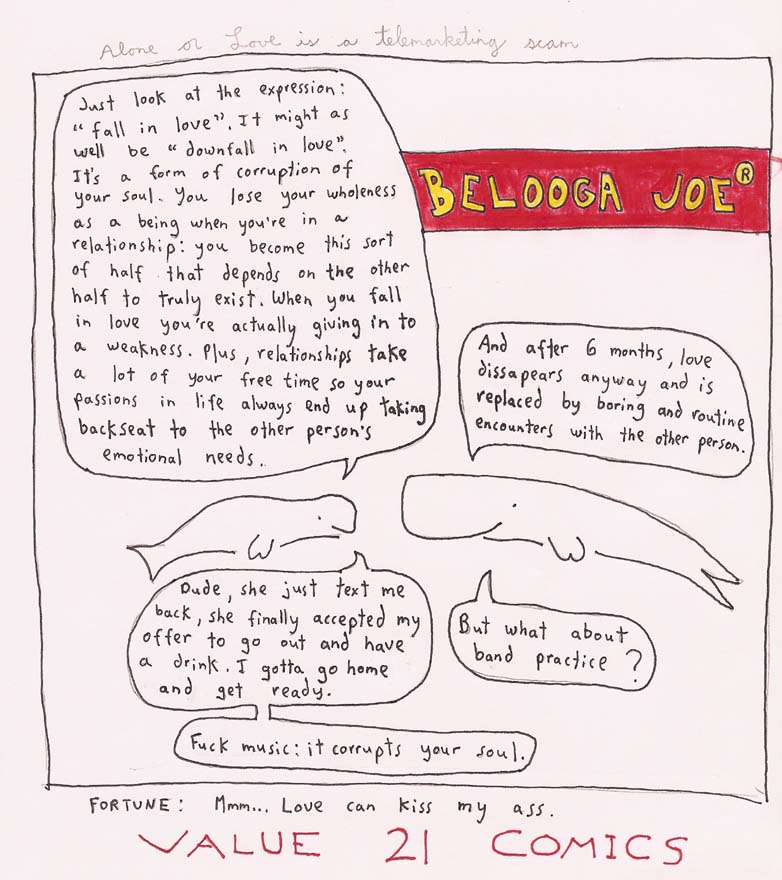 Alone or Love is a telemarketing scam
BELOOGA JOE®
Just look at the expression:
"fall in love". It might as
well be "downfall in love".
It's a form of corruption of
your soul. You lose your wholeness
as a being when you're in a
relationship: you become this sort
of half that depends on the other
half to truly exist. When you fall
in love you're actually giving in to
a weakness. Plus, relationships take
a lot of your free time so your
passions in life always end up taking
backseat to the other person's
emotional needs.
And after 6 months, love
dissapears anyway and is
replaced by boring and routine
encounters with the other person.
Dude, she just text me
back, she finally accepted my
offer to go out and have
a drink. I gotta go home
and get ready.
But what about
band practice?
Fuck music: it corrupts your soul.
FORTUNE: Mmm... Love can kiss my ass.
VALUE 21 COMICS